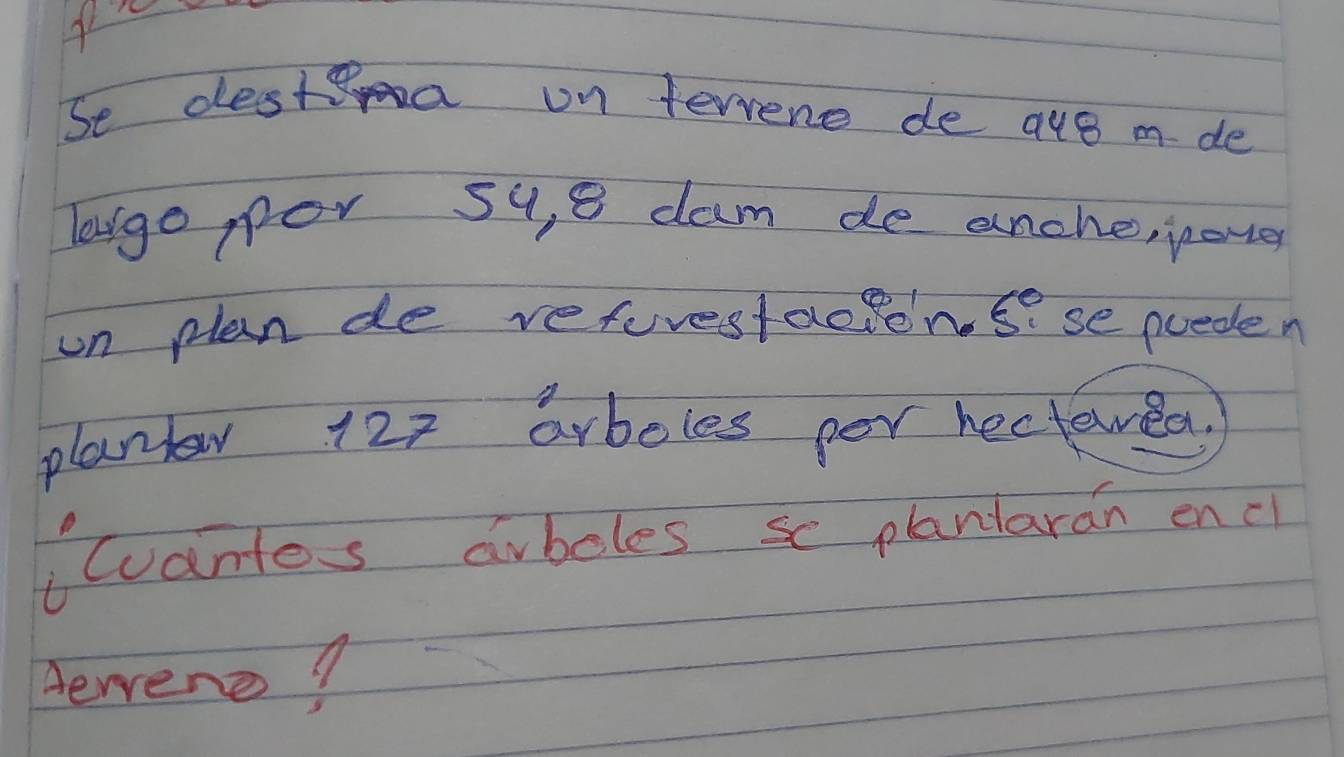 Se destina un terreno de 948 m de
largo, por 54,8 dam de ancho, para
un plan de reforestación. Si se pueden
plantar 127 árboles por hectarea.
¿Cuántos árboles se plantarán en el
terreno?